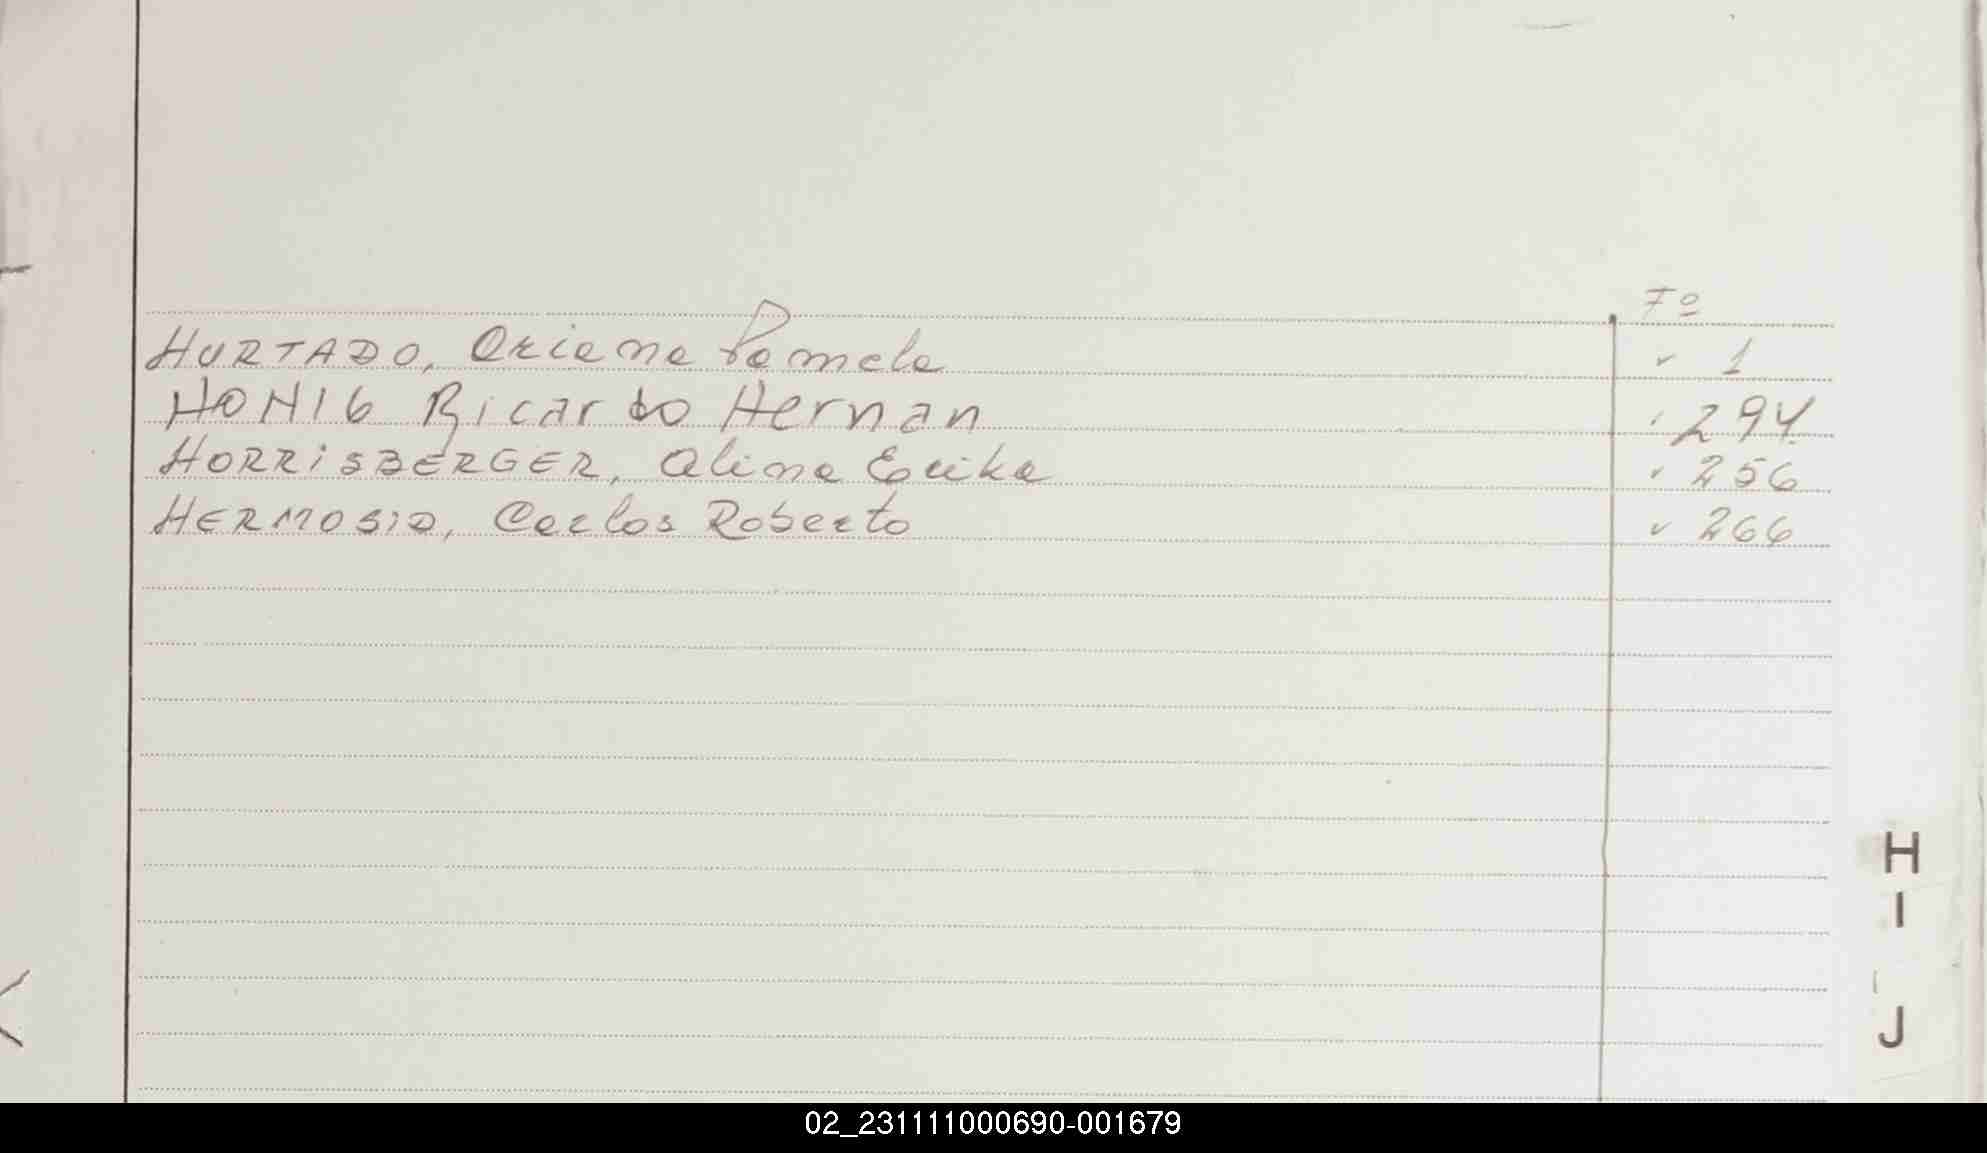 Fº
HURTADO, Oriana Pamela ✓ 1
HONIG Ricardo Hernan ✓ 294
HORRISBERGER, Alina Erika ✓ 256
HERMOSID, Carlos Roberto ✓ 266
H
I
J
02_231111000690-001679